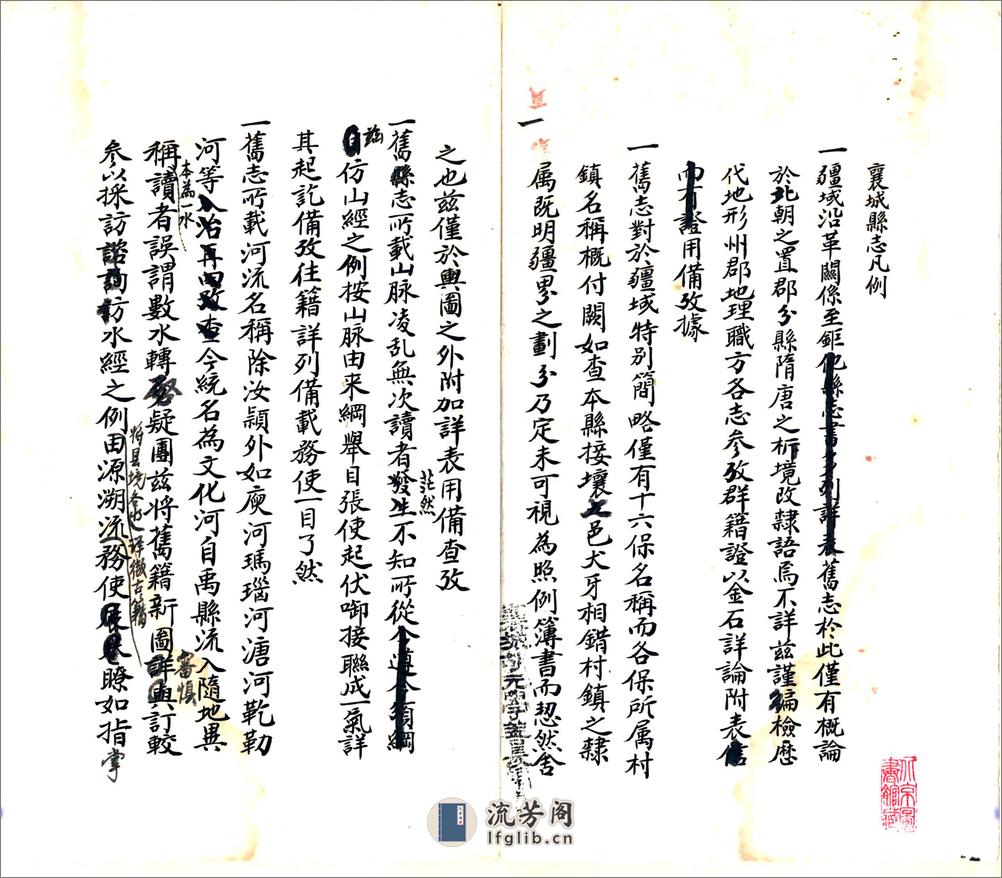 襄城縣志凡例
一疆域沿革關係至鉅他縣志書多列詳表舊志於此僅有概論
於北朝之置郡分縣隋唐之析境改隸語焉不詳茲謹編檢歷
代地形州郡地理職方各志參攷群籍證以金石詳論附表信
而有證用備攷據
一舊志對於疆域特别簡略僅有十六保名稱而各保所属村
鎮名稱概付闕如查本縣接壤之邑犬牙相錯村鎮之隸
属既明疆界之劃分乃定未可視為照例簿書而恝然舍
一
頁
之也茲僅於輿圖之外附加詳表用備查攷
一舊縣志所載山脉凌乱無次讀者茫然不知所從
茲仿山經之例按山脉由来綱舉目張使起伏啣接聯成一氣詳
其起訖備攷往籍詳列備載務使一目了然
一舊志所載河流名稱除汝潁外如庾河瑪瑙河溏河乾勒
河等查今統名為文化河自禹縣流入隨地異
稱本為一水讀者誤謂數水轉啓疑團茲將舊籍新圖審慎訂較
參以採訪諮詢仿水經之例由源溯流務使瞭如指掌
北京圖書館藏
流芳阁
lfglib.cn